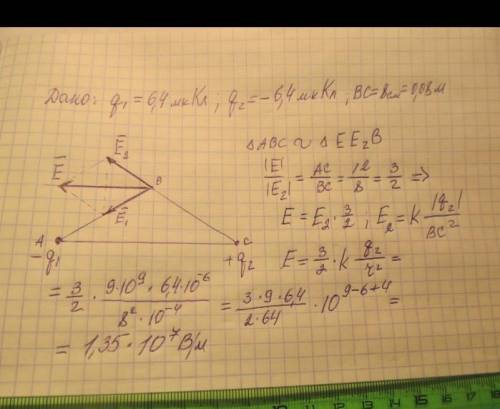 Дано: q₁ = 6,4 мкКл, q₂ = -6,4 мкКл, BC = 8см = 0,08 м
△ABC ∾ △EE₂B
|E̅|/|E̅₂| = AC/BC = 12/8 = 3/2 =>
E = E₂ · 3/2, E₂ = k |q₂|/BC²
E = 3/2 · k q₂/r² =
E̅₂
E̅
B
E̅₁
A
C
-q₁
+q₂
= 3/2 · 9·10⁹ · 6,4·10⁻⁶/8²·10⁻⁴ = 3·9·6,4/2·64 · 10⁹⁻⁶⁺⁴ =
= 1,35 · 10⁷ В/м
10 11 12 13 14 15 16 17 18